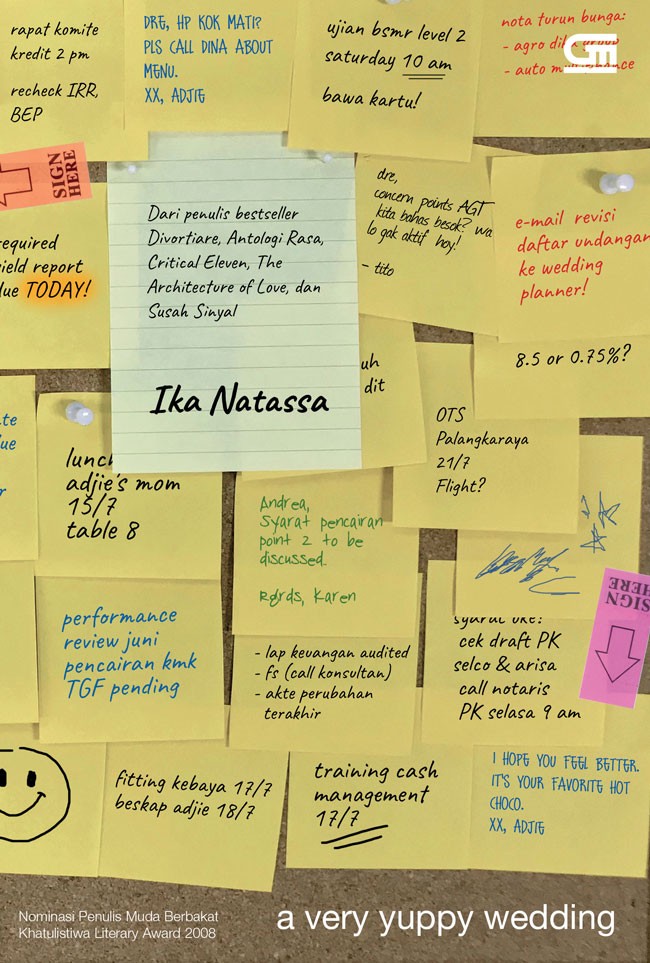 rapat komite
kredit 2 pm
recheck IRR,
BEP
DRE, HP KOK MATI?
PLS CALL DINA ABOUT
MENU.
XX, ADJIE
ujian bsmr level 2
saturday 10 am
bawa kartu!
nota turun bunga:
- agro
- auto
GM
SIGN
HERE
required
ield report
ue TODAY!
Dari penulis bestseller
Divortiare, Antologi Rasa,
Critical Eleven, The
Architecture of Love, dan
Susah Sinyal
Ika Natassa
dre,
concern points AGT
kita bahas besok? wa
lo gak aktif hoy!
- tito
e-mail revisi
daftar undangan
ke wedding
planner!
8.5 or 0.75%?
uh
dit
OTS
Palangkaraya
21/7
Flight?
te
ue
r
lunch
adjie's mom
15/7
table 8
Andrea,
Syarat pencairan
point 2 to be
discussed.
Rgrds, Karen
SIGN
HERE
performance
review juni
pencairan kmk
TGF pending
- lap keuangan audited
- fs (call konsultan)
- akte perubahan
terakhir
cek draft PK
selco & arisa
call notaris
PK selasa 9 am
fitting kebaya 17/7
beskap adjie 18/7
training cash
management
17/7
I HOPE YOU FEEL BETTER.
IT'S YOUR FAVORITE HOT
CHOCO.
XX, ADJIE
Nominasi Penulis Muda Berbakat
Khatulistiwa Literary Award 2008
a very yuppy wedding